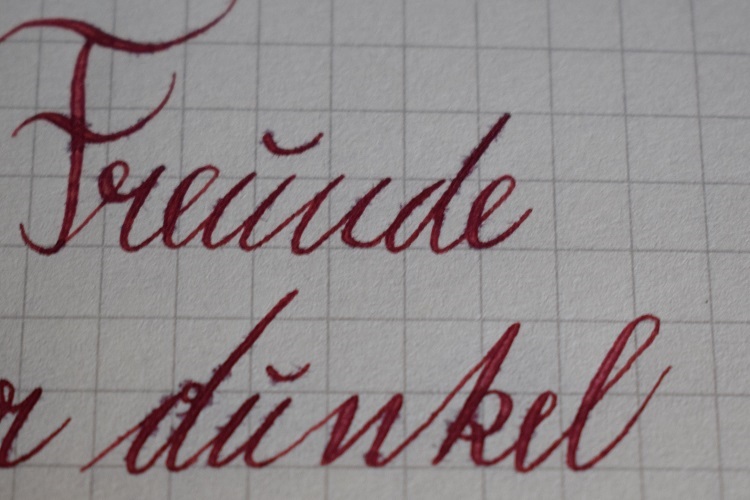 Freunde
dunkel